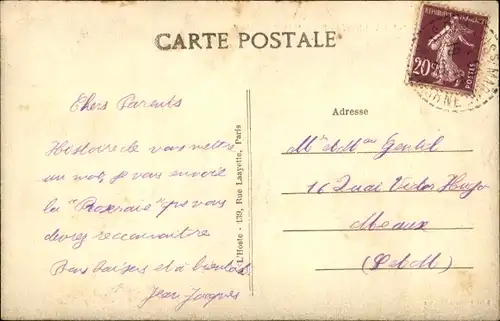 CARTE POSTALE
REPUBLIQUE FRANÇAISE
20c
POSTES
Chers Parents
Histoire de vous mettre
un mot je vous envoie
la "Roseraie" que vous
devez reconnaitre
Bons baisers et à bientôt
Jean Jacques
L'Hoste - 139, Rue Lafayette, Paris
Adresse
Mr et Mme Gentil
16 Quai Victor Hugo
Meaux
(S et M)